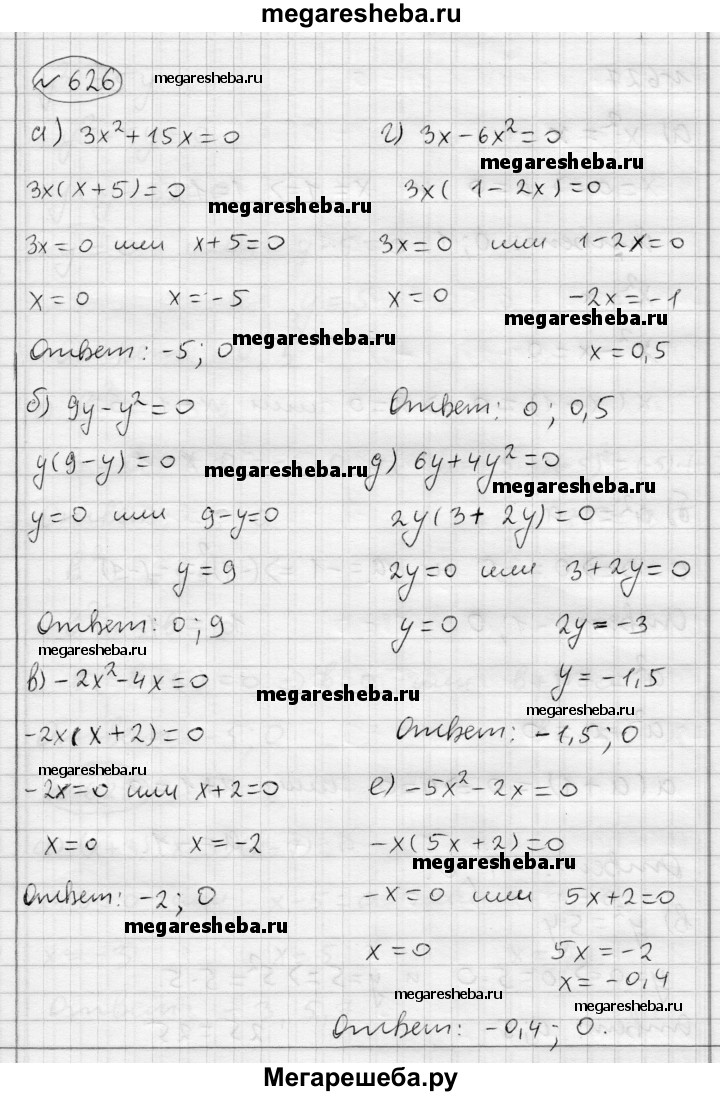 megaresheba.ru
№ 626 megaresheba.ru
а) 3x² + 15x = 0
3x(x + 5) = 0
megaresheba.ru
3x = 0 или x + 5 = 0
x = 0 x = -5
megaresheba.ru
Ответ: -5; 0
б) 9y - y² = 0
y(9 - y) = 0
megaresheba.ru
y = 0 или 9 - y = 0
y = 9
Ответ: 0; 9
megaresheba.ru
в) -2x² - 4x = 0
megaresheba.ru
-2x(x + 2) = 0
megaresheba.ru
-2x = 0 или x + 2 = 0
x = 0 x = -2
Ответ: -2; 0
megaresheba.ru
г) 3x - 6x² = 0
megaresheba.ru
3x( 1 - 2x) = 0
3x = 0 или 1 - 2x = 0
x = 0 -2x = -1
megaresheba.ru
x = 0,5
Ответ: 0; 0,5
д) 6y + 4y² = 0
megaresheba.ru
2y(3 + 2y) = 0
2y = 0 или 3 + 2y = 0
y = 0 2y = -3
y = -1,5
megaresheba.ru
Ответ: -1,5; 0
е) -5x² - 2x = 0
-x(5x + 2) = 0
megaresheba.ru
-x = 0 или 5x + 2 = 0
x = 0 5x = -2
x = -0,4
megaresheba.ru
megaresheba.ru
Ответ: -0,4; 0.
Мегарешеба.ру